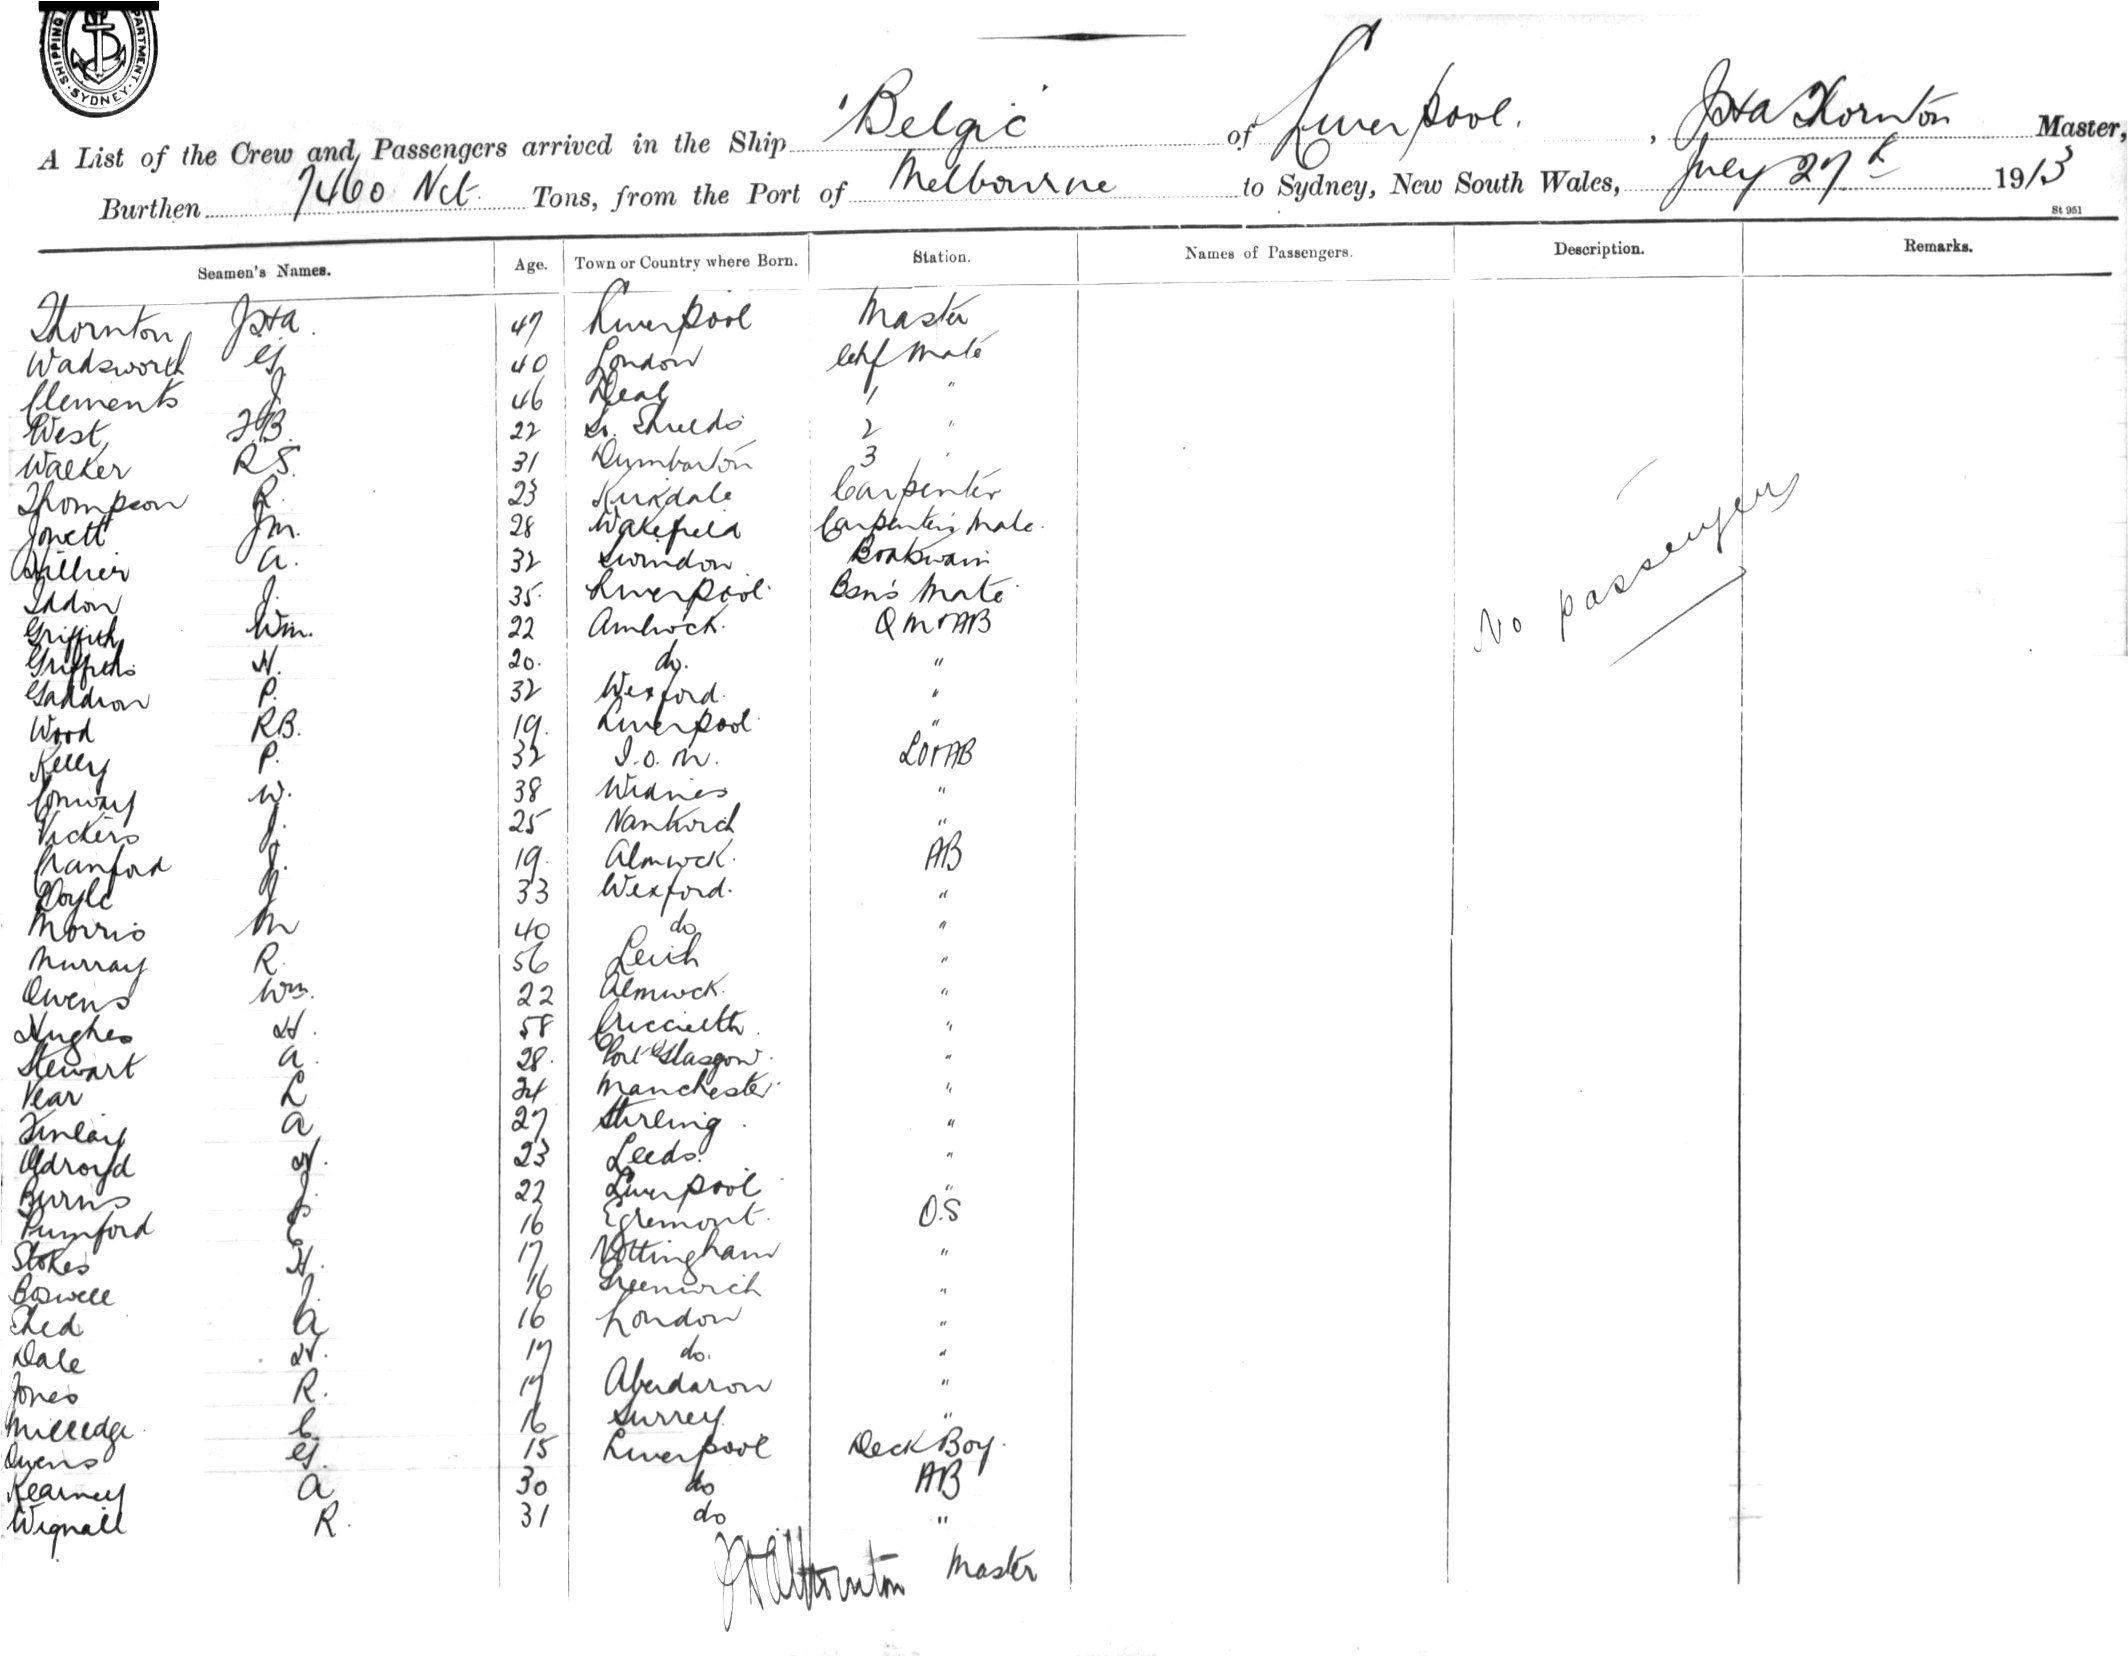 SHIPPING DEPARTMENT SYDNEY
A List of the Crew and Passengers arrived in the Ship "Belgic" of Liverpool, JHA Thornton Master,
Burthen 7460 Net Tons, from the Port of Melbourne to Sydney, New South Wales, July 27th 1913
St 951
Seamen's Names. Age. Town or Country where Born. Station. Names of Passengers. Description. Remarks.
Thornton JHA. 47 Liverpool Master
Wadsworth G. 40 London Chf Mate
Clements J 46 Deal 1 "
West, F.B. 22 So. Shields 2 "
Walker R S. 31 Dumbarton 3 "
Thompson R. 23 Kirkdale Carpenter
Jowett J.M. 28 Wakefield Carpenter's Mate.
Hillier A. 32 Swindon Boatswain
Iddon J. 35 Liverpool Bsn's Mate
Griffith Wm. 22 Amlwck. Q M & AB
Griffiths H. 20. do. "
P. 32 Wexford. "
Wood R.B. 19. Liverpool "
Kelly P. 32 I.O.M. LO & AB
Conway W. 38 Widnes "
Vickers J. 25 Nantwich "
Cranford J. 19. Almwck. AB
Doyle J 33 Wexford. "
Morris M 40 do "
Murray R. 56 Leith "
Owens Wm. 22 Almwck. "
Hughes H. 58 Criccieth "
Stewart A. 28. Port Glasgow. "
Vear L 24 Manchester "
Finlay A 27 Stirling. "
Oldroyd H. 23 Leeds. "
Burns J. 22 Liverpool "
Pumford E 16 Egremont. O.S
Stokes H. 17 Nottingham "
Boswell J. 16 Greenwich "
A 16 London "
Dale H. 17 do. "
Jones R. 17 Aberdaron "
Milledge. C. 16 Surrey "
Owens G. 15 Liverpool Deck Boy.
Kearney A 30 do AB
Wignall R. 31 do "
No passengers
JHA Thornton Master